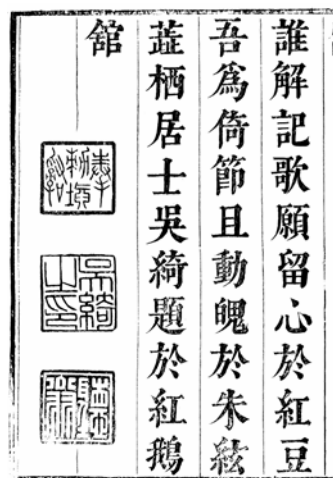 誰解記歌願留心於紅豆
吾爲倚節且動魄於朱絃
蕋栖居士吳綺題於紅鵝
館
吳綺之印